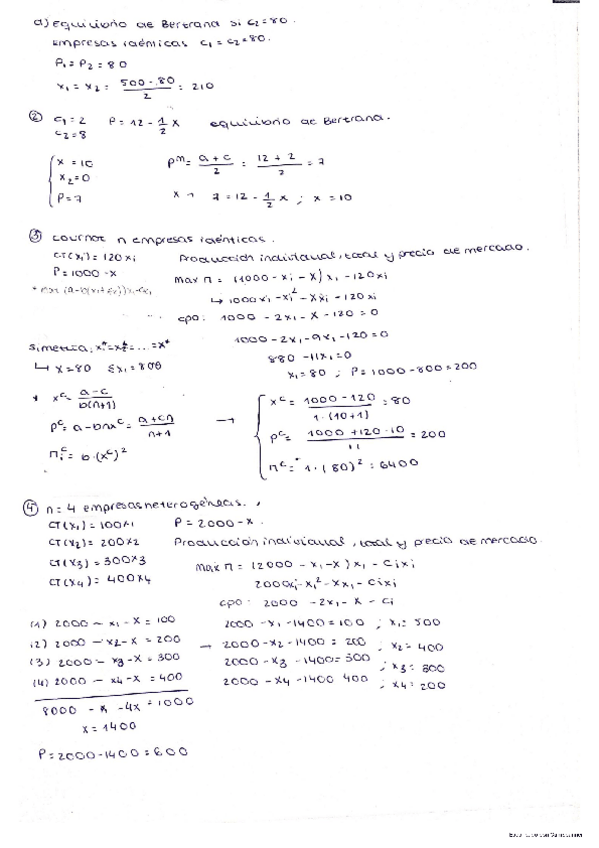 a) Equilibrio de Bertrand si c₂ = 80.
Empresas idénticas c₁ = c₂ = 80.
P₁ = P₂ = 80
x₁ = x₂ = (500 - 80)/2 = 210
② c₁ = 2 P = 12 - 1/2 x equilibrio de Bertrand.
c₂ = 8
{ x = 10 Pᵐ = (a + c)/2 = (12 + 2)/2 = 7
x₂ = 0
P = 7 x → 7 = 12 - 1/2 x ; x = 10
③ Cournot n empresas idénticas.
CT(xi) = 120xi Producción individual, total y precio de mercado.
P = 1000 - x Max π = (1000 - xi - X) xi - 120xi
↳ 1000xi - xi² - Xxi - 120xi
CPO: 1000 - 2xi - X - 120 = 0
Simetría: x₁* = x₂* = ... = x* 1000 - 2xi - 9xi - 120 = 0
↳ x = 80 Σxi = 800 880 - 11xi = 0
xi = 80 ; P = 1000 - 800 = 200
* xᶜ = (a - c)/(b(n+1))
Pᶜ = a - bnxᶜ = (a + cn)/(n+1) → { xᶜ = (1000 - 120)/(1·(10+1)) = 80
Pᶜ = (1000 + 120·10)/11 = 200
πᵢᶜ = b·(xᶜ)² πᶜ = 1·(80)² = 6400
④ n = 4 empresas heterogéneas.
CT(x₁) = 100x₁ P = 2000 - x.
CT(x₂) = 200x₂ Producción individual, total y precio de mercado.
CT(x₃) = 300x₃ Max π = (2000 - xi - X) xi - cixi
CT(x₄) = 400x₄ 2000xi - xi² - Xxi - cixi
CPO: 2000 - 2xi - X - ci
(1) 2000 - x₁ - X = 100 2000 - x₁ - 1400 = 100 ; x₁ = 500
(2) 2000 - x₂ - X = 200 → 2000 - x₂ - 1400 = 200 ; x₂ = 400
(3) 2000 - x₃ - X = 300 2000 - x₃ - 1400 = 300 ; x₃ = 300
(4) 2000 - x₄ - X = 400 2000 - x₄ - 1400 400 ; x₄ = 200
8000 - x - 4x = 1000
x = 1400
P = 2000 - 1400 = 600